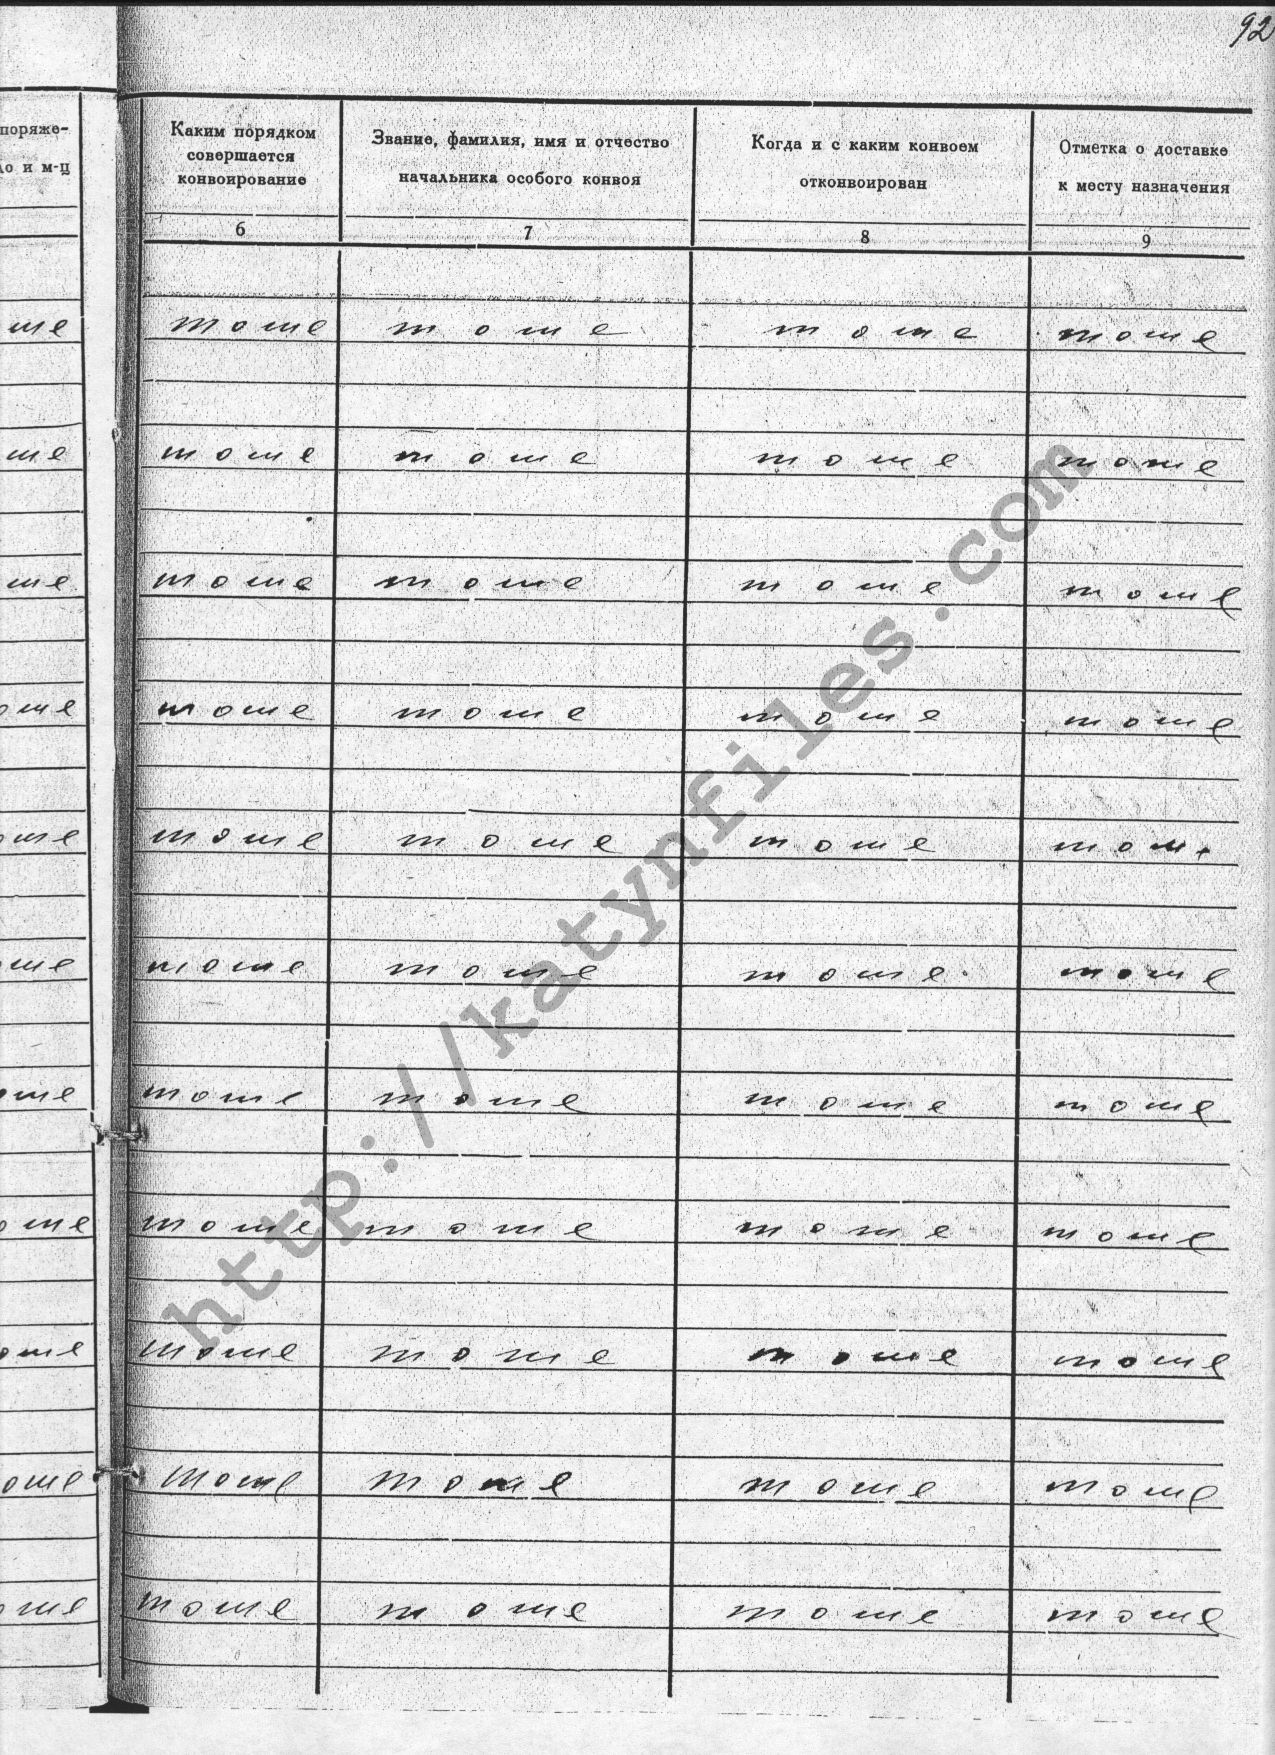 92
поряже-
ло и м-ц
Каким порядком
совершается
конвоирование
Звание, фамилия, имя и отчество
начальника особого конвоя
Когда и с каким конвоем
отконвоирован
Отметка о доставке
к месту назначения
6 7 8 9
же тоже тоже тоже тоже
же тоже тоже тоже тоже
же тоже тоже тоже тоже
оже тоже тоже тоже тоже
оже тоже тоже тоже тоже
оже тоже тоже тоже тоже
оже тоже тоже тоже тоже
оже тоже тоже тоже тоже
оже тоже тоже тоже тоже
оже тоже тоже тоже тоже
оже тоже тоже тоже тоже
http://katynfiles.com